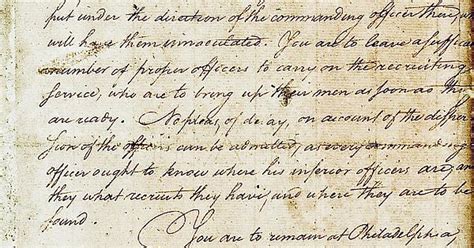 put under the direction of the commanding officer there, who
will have them innoculated. You are to leave a suffic
number of proper officers to carry on the recruiting
service, who are to bring up their men as soon as they
are ready. No pleas, of delay, on account of the disper
sion of the officers can be admitted, as every commanding
officer ought to know where his inferior officers are, and
they what recruits they have, and where they are to be
found.
You are to remain at Philadelphia